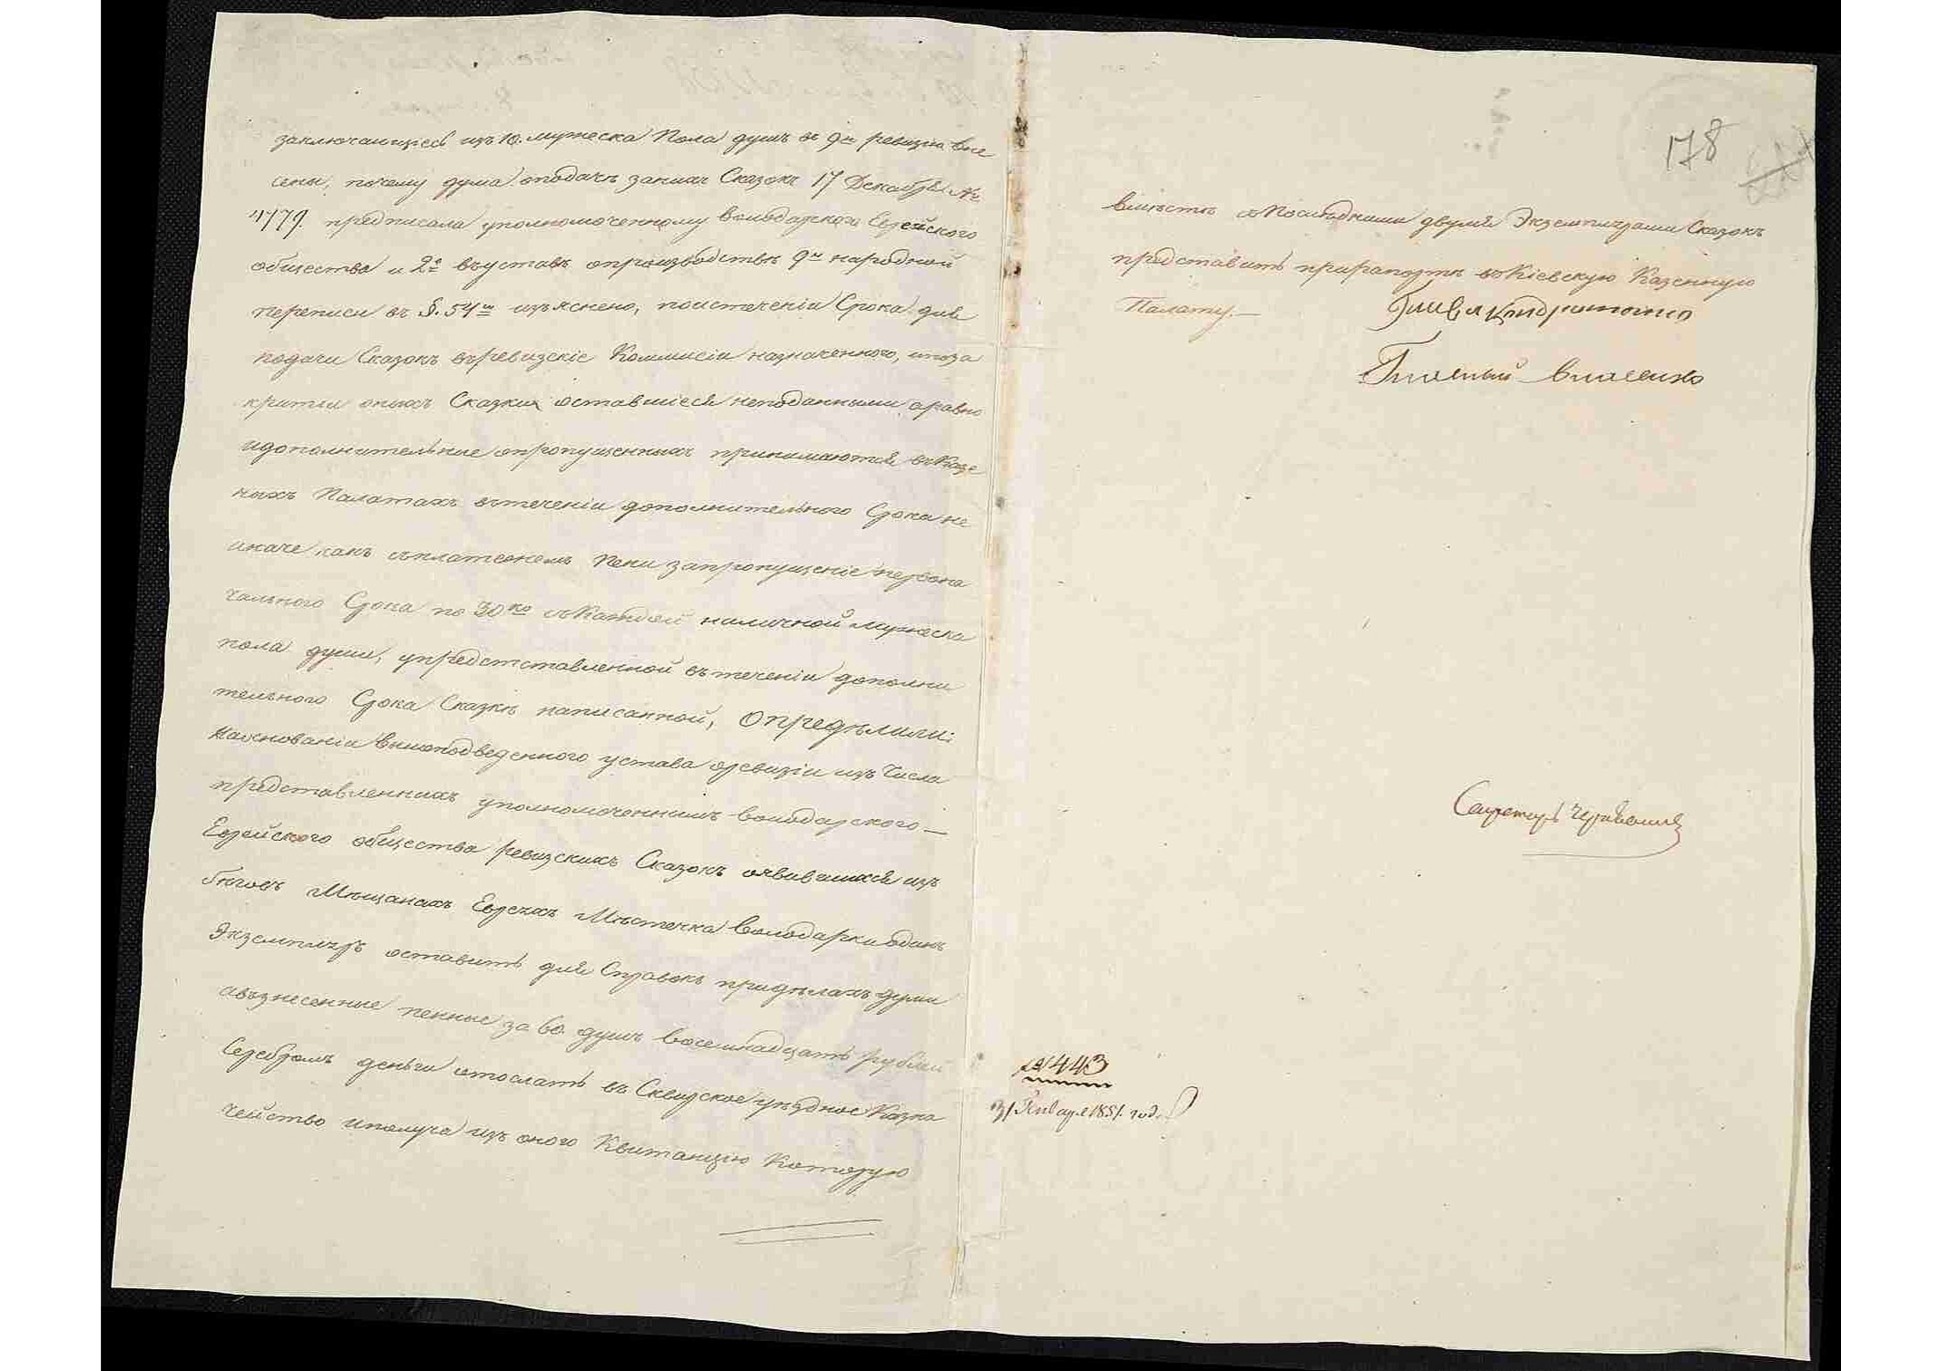 заключающіеся изъ 10. мужеска Пола душъ въ 9ю ревизію вне
сены, почему дума о подачѣ за нихъ Сказокъ 17 Декабря №
4779. предписала уполномоченному Володарского Еврейского
общества и 2е въ уставѣ о производствѣ 9й народной
переписи въ §. 54м изъяснено, по истеченіи Срока для
подачи Сказокъ въ ревизскіе Коммисіи назначенного, и по за
крытіи оныхъ Сказки оставшіеся неподанными, а равно
и дополнительные о пропущенныхъ принимаются въ Казе
ныхъ Палатахъ въ теченіи дополнительного Срока не
иначе какъ съ платежемъ Пени за пропущеніе первона
чального Срока по 30 ко съ Каждой наличной мужеска
пола души, у предстставленной въ теченіи дополни
тельного Срока Сказкѣ написанной, Опредѣлили:
На основаніи вышеподведенного устава о ревизіи изъ Числа
представленныхъ уполномоченнымъ Володарского
Еврейского общества ревизскихъ Сказокъ о явившихся изъ
бѣговъ Мѣщанахъ Евреяхъ Мѣстечка Володарки одинъ
Экземпляръ оставить для Справокъ при дѣлахъ думы
а взнесенные пенные за 60. душъ восемнадцать рублей
Серебромъ деньги отослать въ Сквирское уѣздное Казна
чейство и получа изъ оного Квитанцію Которую
178
вмѣстѣ съ Последними двумя Экземплярами Сказокъ
представить при рапортѣ въ Кіевскую Казенную
Палату.
Гласный Власенко
Секретарь
№ 443
31 Января 1851. года